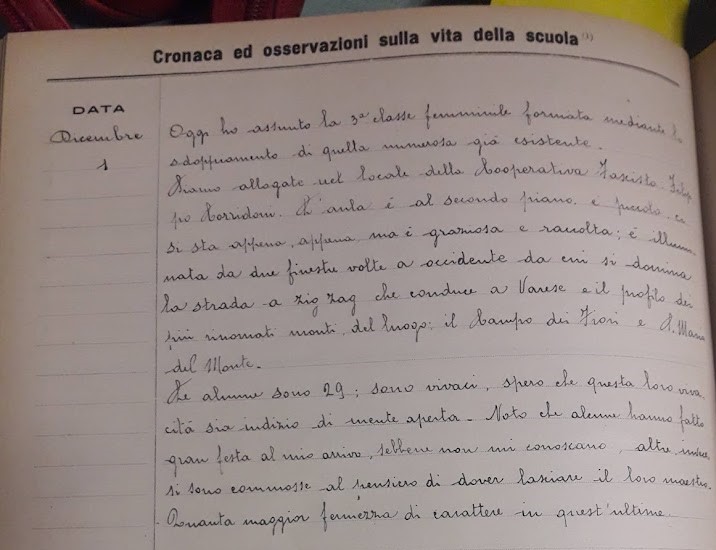 Cronaca ed osservazioni sulla vita della scuola (1)
DATA
Dicembre
1
Oggi ho assunto la 3ª classe femminile formata mediante lo
sdoppiamento di quella numerosa già esistente.
Siamo allogate nel locale della Cooperativa Fascista Filip
po Corridoni. L'aula è al secondo piano, è piccola, ci
si sta appena, appena ma è graziosa e raccolta; è illumi
nata da due finestre volte a occidente da cui si domina
la strada a zig zag che conduce a Varese e il profilo dei
più rinomati monti del luogo: il Campo dei Fiori e S. Maria
del Monte.
Le alunne sono 29; sono vivaci, spero che questa loro viva
cità sia indizio di mente aperta. Noto che alcune hanno fatto
gran festa al mio arrivo, sebbene non mi conoscano, altre invece
si sono commosse al pensiero di dover lasciare il loro maestro.
Quanta maggior fermezza di carattere in quest'ultime.